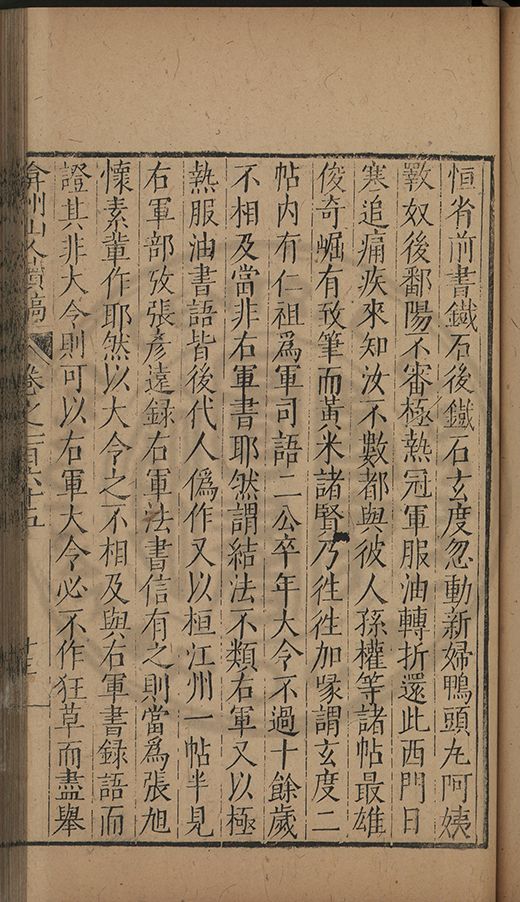 恒省前書鐵石後鐵石玄度忽動新婦鴨頭丸阿姨
斁奴後鄱陽不審極熱冠軍服油轉折還此西門日
寒追痛疾來知汝不數都與彼人孫權等諸帖最雄
俊奇崛有致筆而黃米諸賢乃徃徃加喙謂玄度二
帖内有仁祖爲軍司語二公卒年大令不過十餘歲
不相及當非右軍書耶然謂結法不類右軍又以極
熱服油書語皆後代人僞作又以桓江州一帖半見
右軍部攷張彥遠録右軍法書信有之則當爲張旭
懷素輩作耶然以大令之不相及與右軍書録語而
證其非大令則可以右軍大令必不作狂草而盡舉
弇州山人續稿 卷之一百六十五 十三